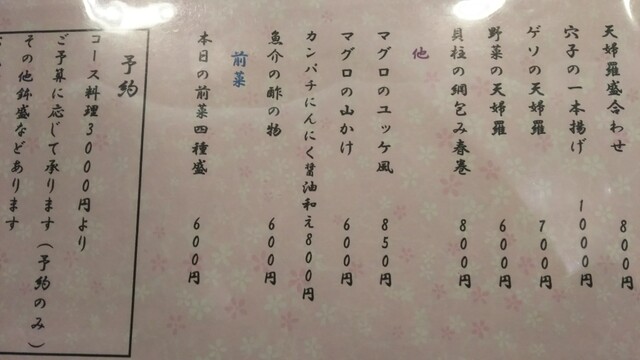 天婦羅盛合わせ 800円
穴子の一本揚げ 1000円
ゲソの天婦羅 700円
野菜の天婦羅 600円
貝柱の網包み春巻 800円
他
マグロのユッケ風 850円
マグロの山かけ 600円
カンパチにんにく醤油和え800円
魚介の酢の物 600円
前菜
本日の前菜四種盛 600円
予約
コース料理3000円より
ご予算に応じて承ります（予約のみ）
その他鉢盛などあります